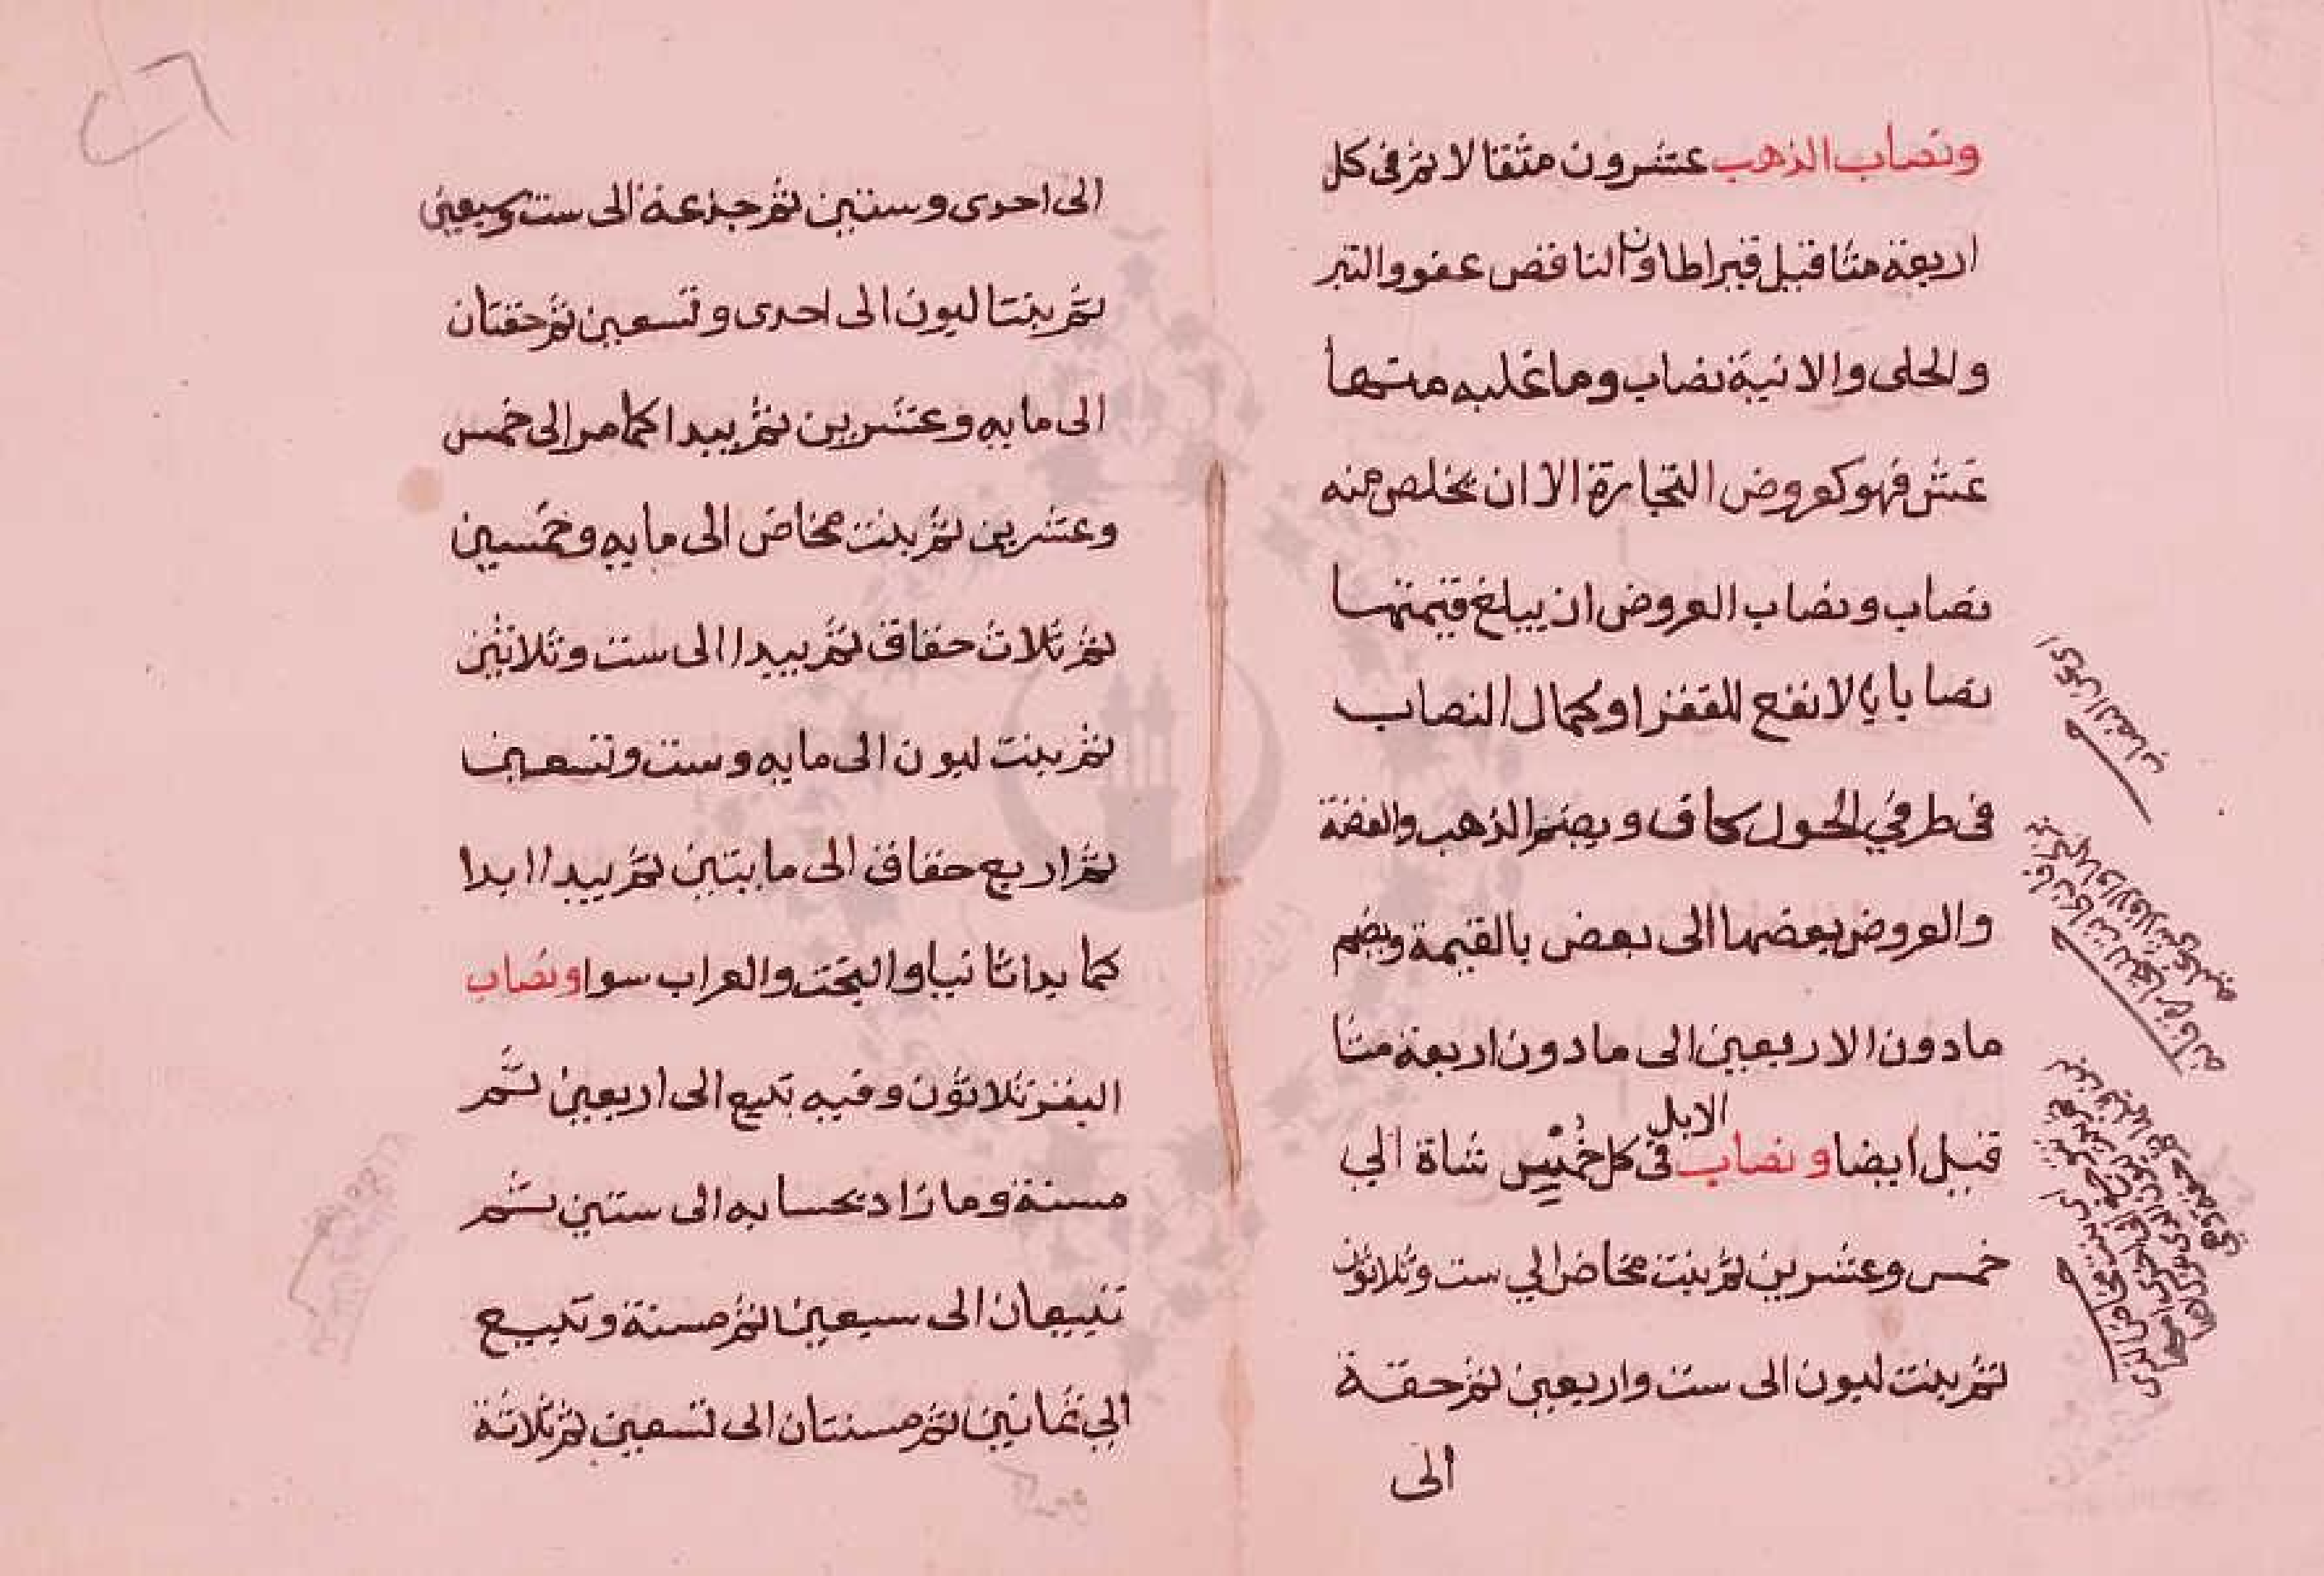 ونصاب الذهب عشرون مثقالا ثم فى كل
اربعة مثاقيل قيراطاون الناقص عفو والتبر
والحلى والانية نصاب وما غلبه منهما
غش فهو كعروض التجارة الا ان يخلص منه
نصاب ونصاب العروض ان يبلغ قيمتها
نصابا بالانفع للفقرا وكمال النصاب
فى طرفي الحول كاف ويضم الذهب والفضة
والعروض بعضها الى بعض بالقيمة ويضم
مادون الاربعين الى مادون اربعة مثا
قيل ايضا ونصاب الابل فى كل خمس شاة الي
خمس وعشرين ثم بنت مخاض الي ست وثلاثون
ثم بنت لبون الى ست واربعين ثم حقة
الى
الى احدى وستين ثم جذعة الى ست وسبعين
ثم بنتا لبون الى احدى وتسعين ثم حقتان
الى مايه وعشرين ثم يبدا كما مر الى خمس
وعشرين ثم بنت مخاض الى مايه وخمسين
ثم ثلاث حقاق ثم يبدا الى ست وثلاثين
ثم بنت لبون الى مايه وست وتسعين
ثم اربع حقاق الى مايتين ثم يبدا ابدا
كما بدا ثانيا والبخت والعراب سوا ونصاب
البقر ثلاثون وفيه تبيع الى اربعين ثم
مسنة وما زاد بحسابه الى ستين ثم
تبيعان الى سبعين ثم مسنة وتبيع
الي ثمانين ثم مسنتان الى تسعين ثم ثلاثة